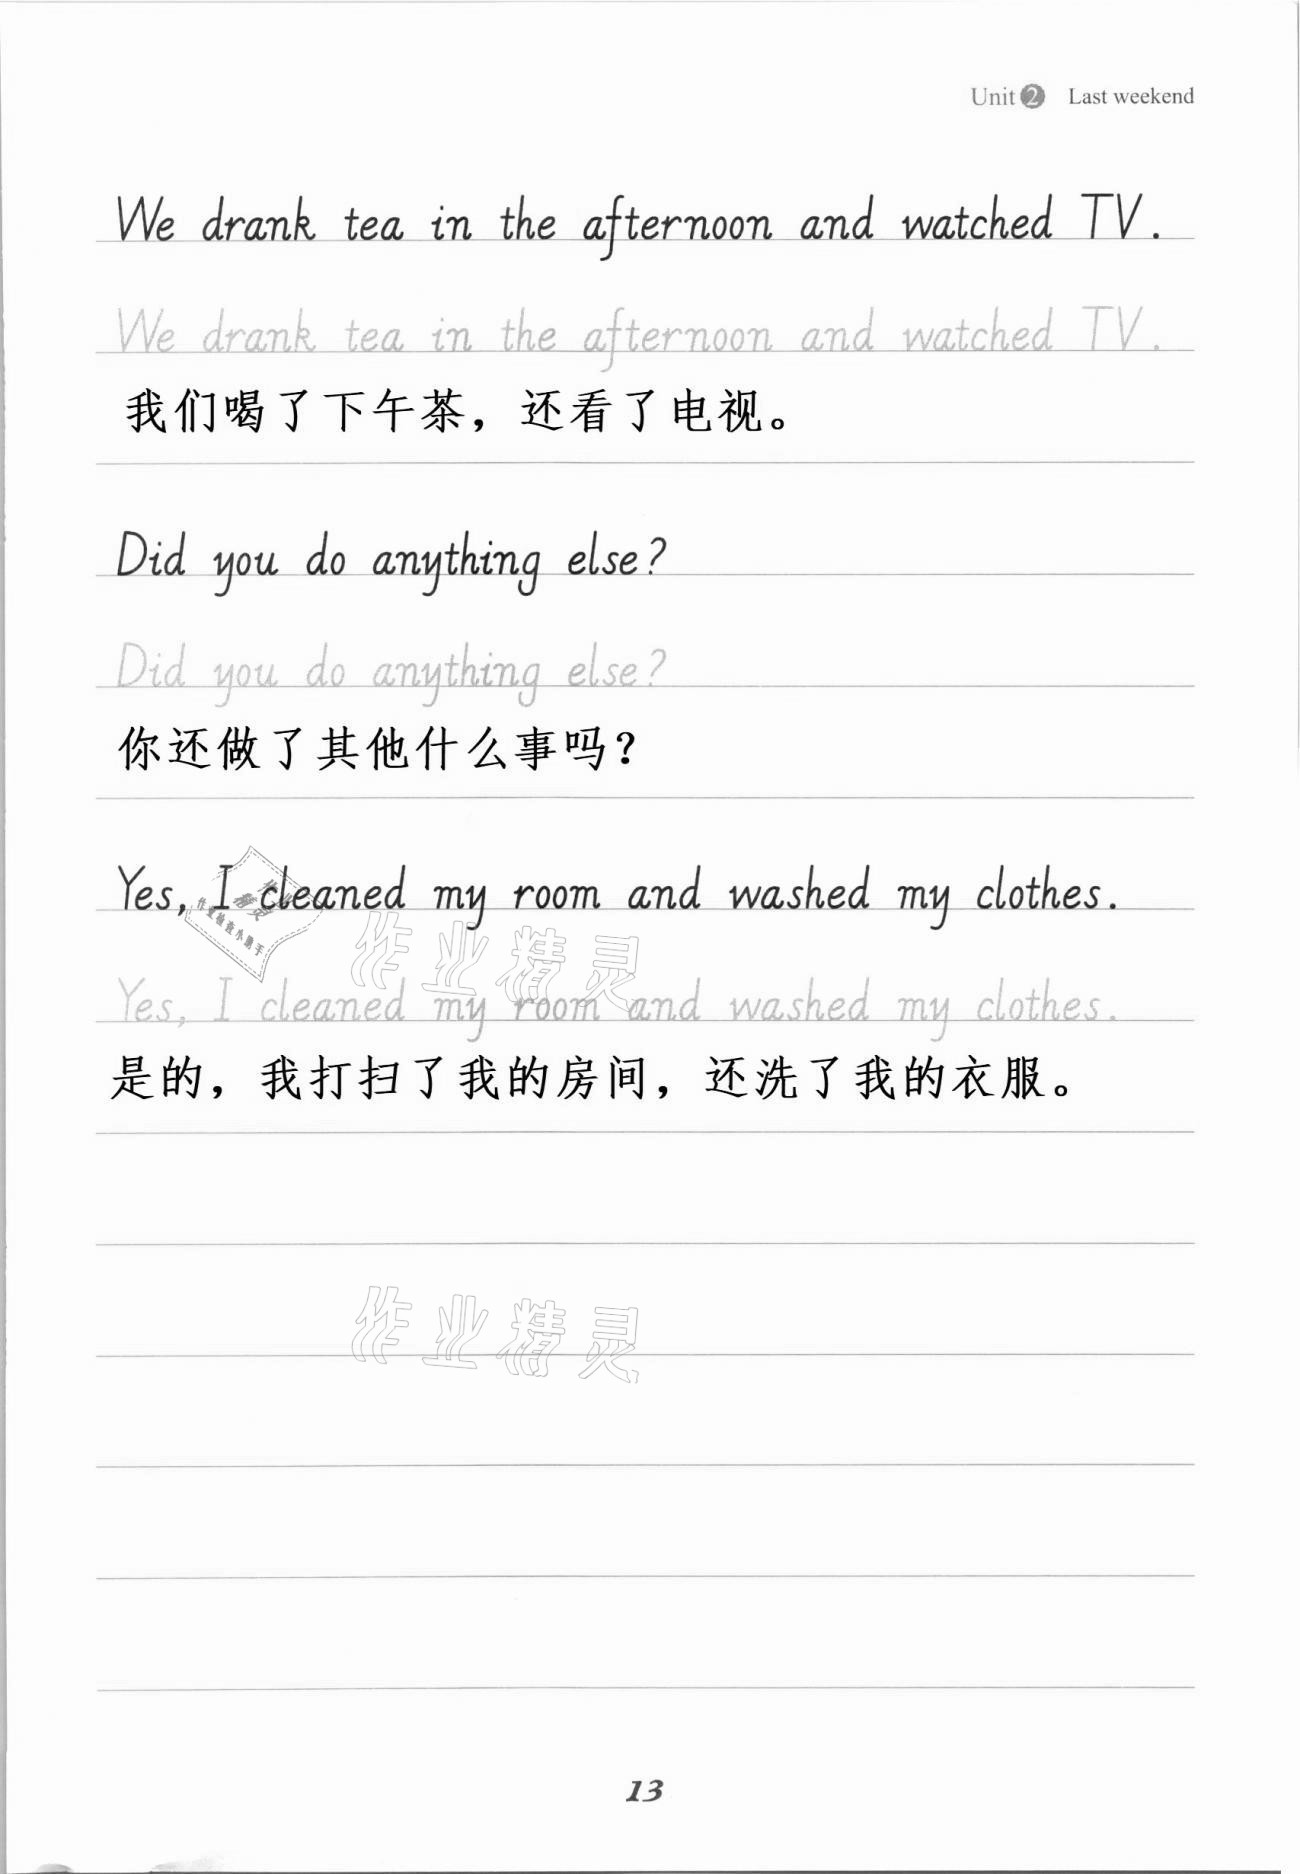 Unit 2 Last weekend
We drank tea in the afternoon and watched TV.
We drank tea in the afternoon and watched TV.
我们喝了下午茶，还看了电视。
Did you do anything else?
Did you do anything else?
你还做了其他什么事吗？
Yes, I cleaned my room and washed my clothes.
作业精灵
作业检查小助手
作业精灵
Yes, I cleaned my room and washed my clothes.
是的，我打扫了我的房间，还洗了我的衣服。
作业精灵
13